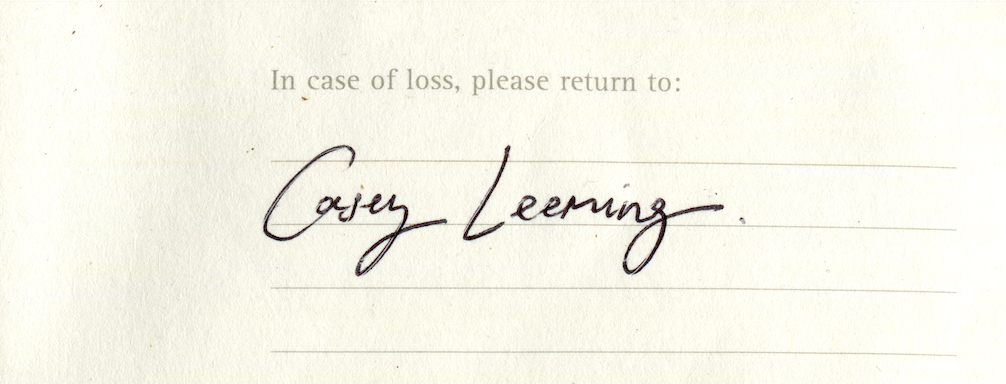 In case of loss, please return to:
Casey Leeming.